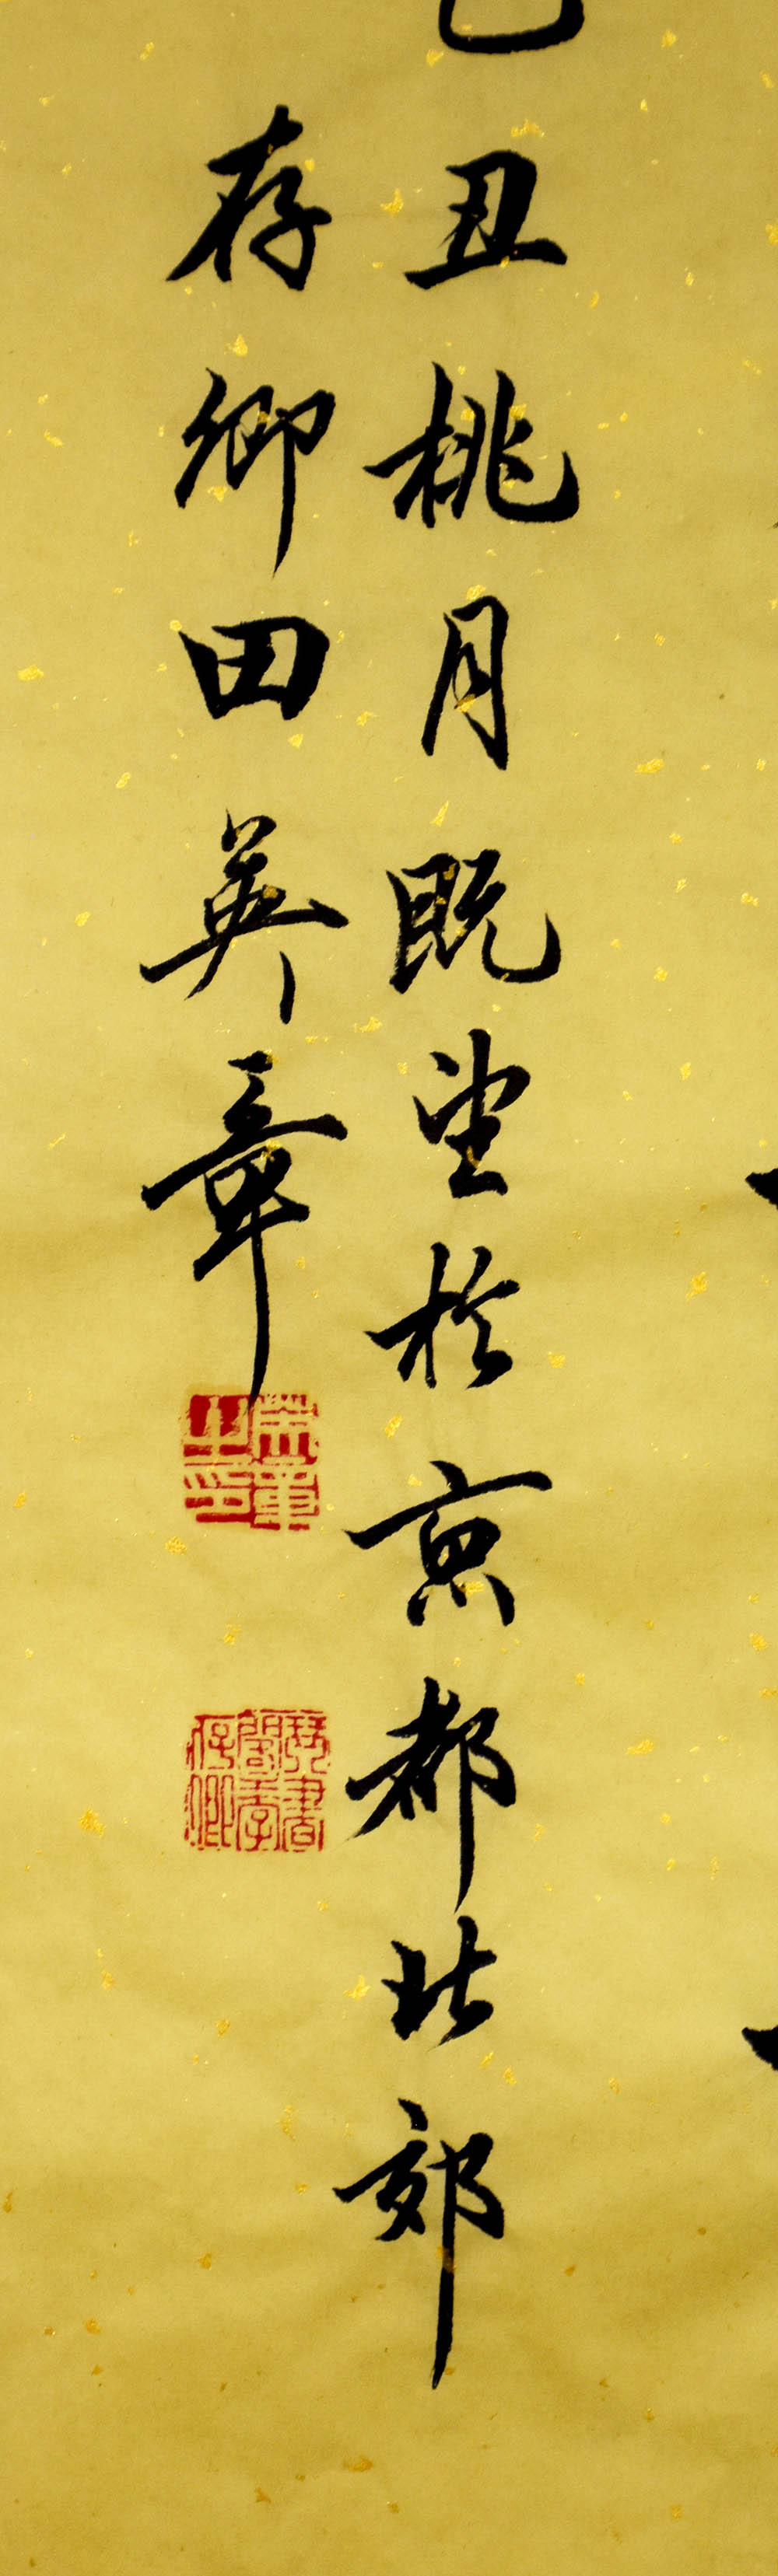 丑桃月既望於京都北郊
存卿田英章